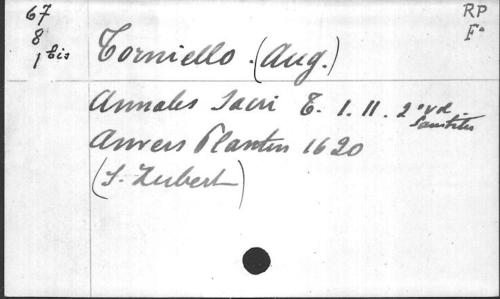 67
8
1 bis
RP
F°
Torniello. (Aug.)
Annales Sacri T. I. II. 2
Anvers Plantin 1620